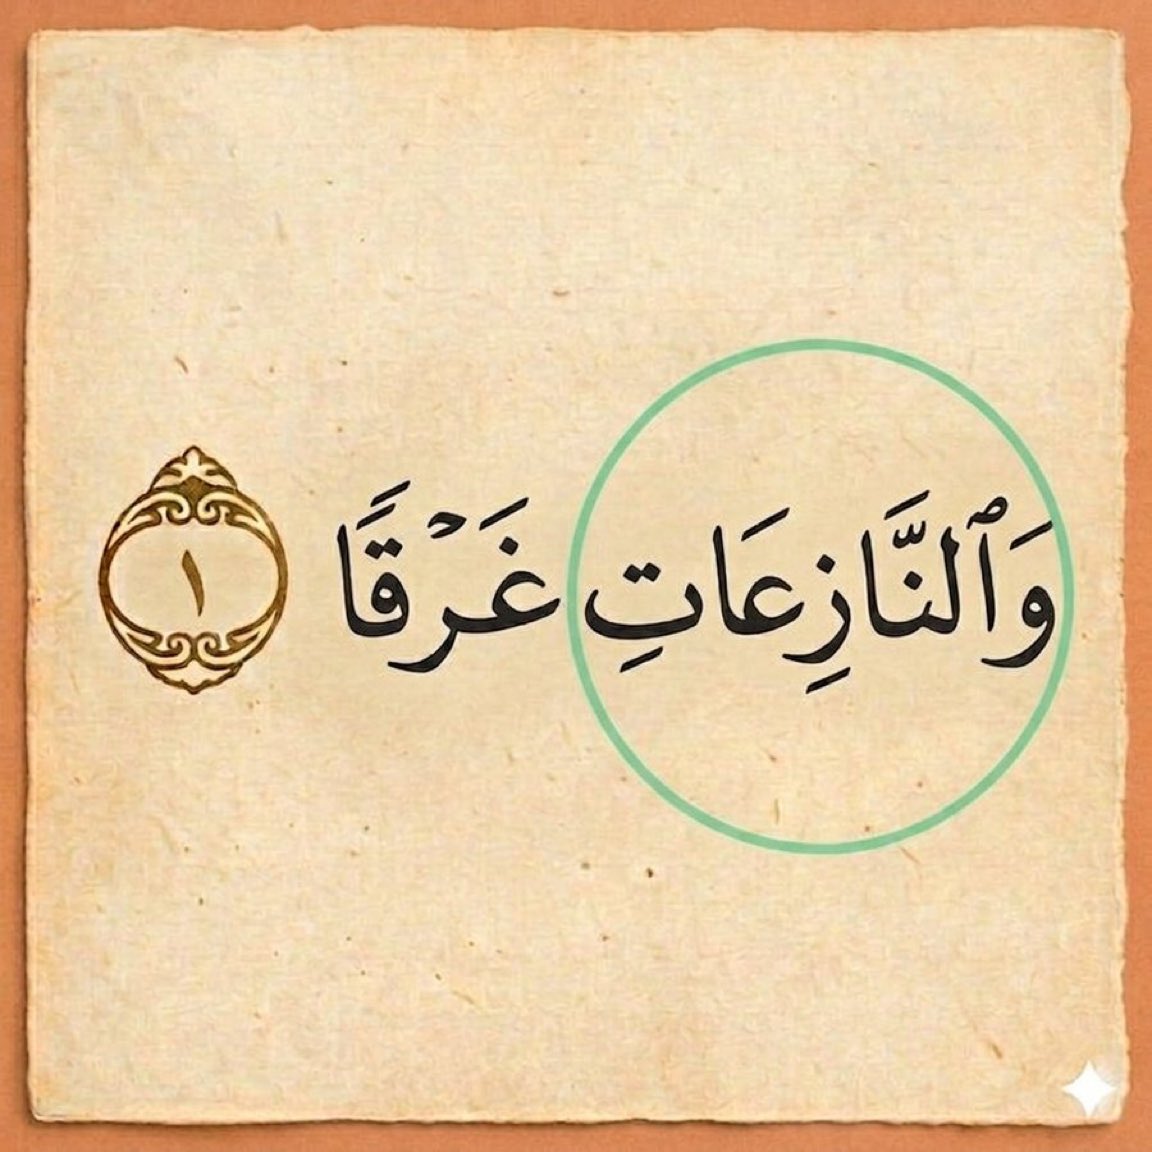 وَٱلنَّازِعَاتِ غَرْقًا ١